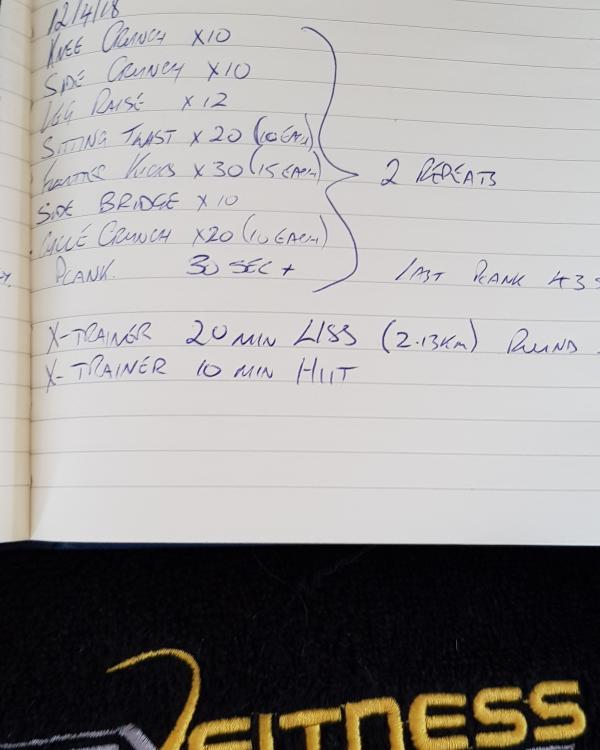 12/4/18
KNEE CRUNCH X10
SIDE CRUNCH X10
LEG RAISE X12
SITTING TWIST X20 (10 EACH)
FLUTTER KICKS X30 (15 EACH)
2 REPEATS
SIDE BRIDGE X10
CYCLE CRUNCH X20 (10 EACH)
PLANK. 30 SEC + LAST PLANK 43S
X-TRAINER 20 MIN LISS (2.13KM)
X-TRAINER 10 MIN HIIT
FITNESS